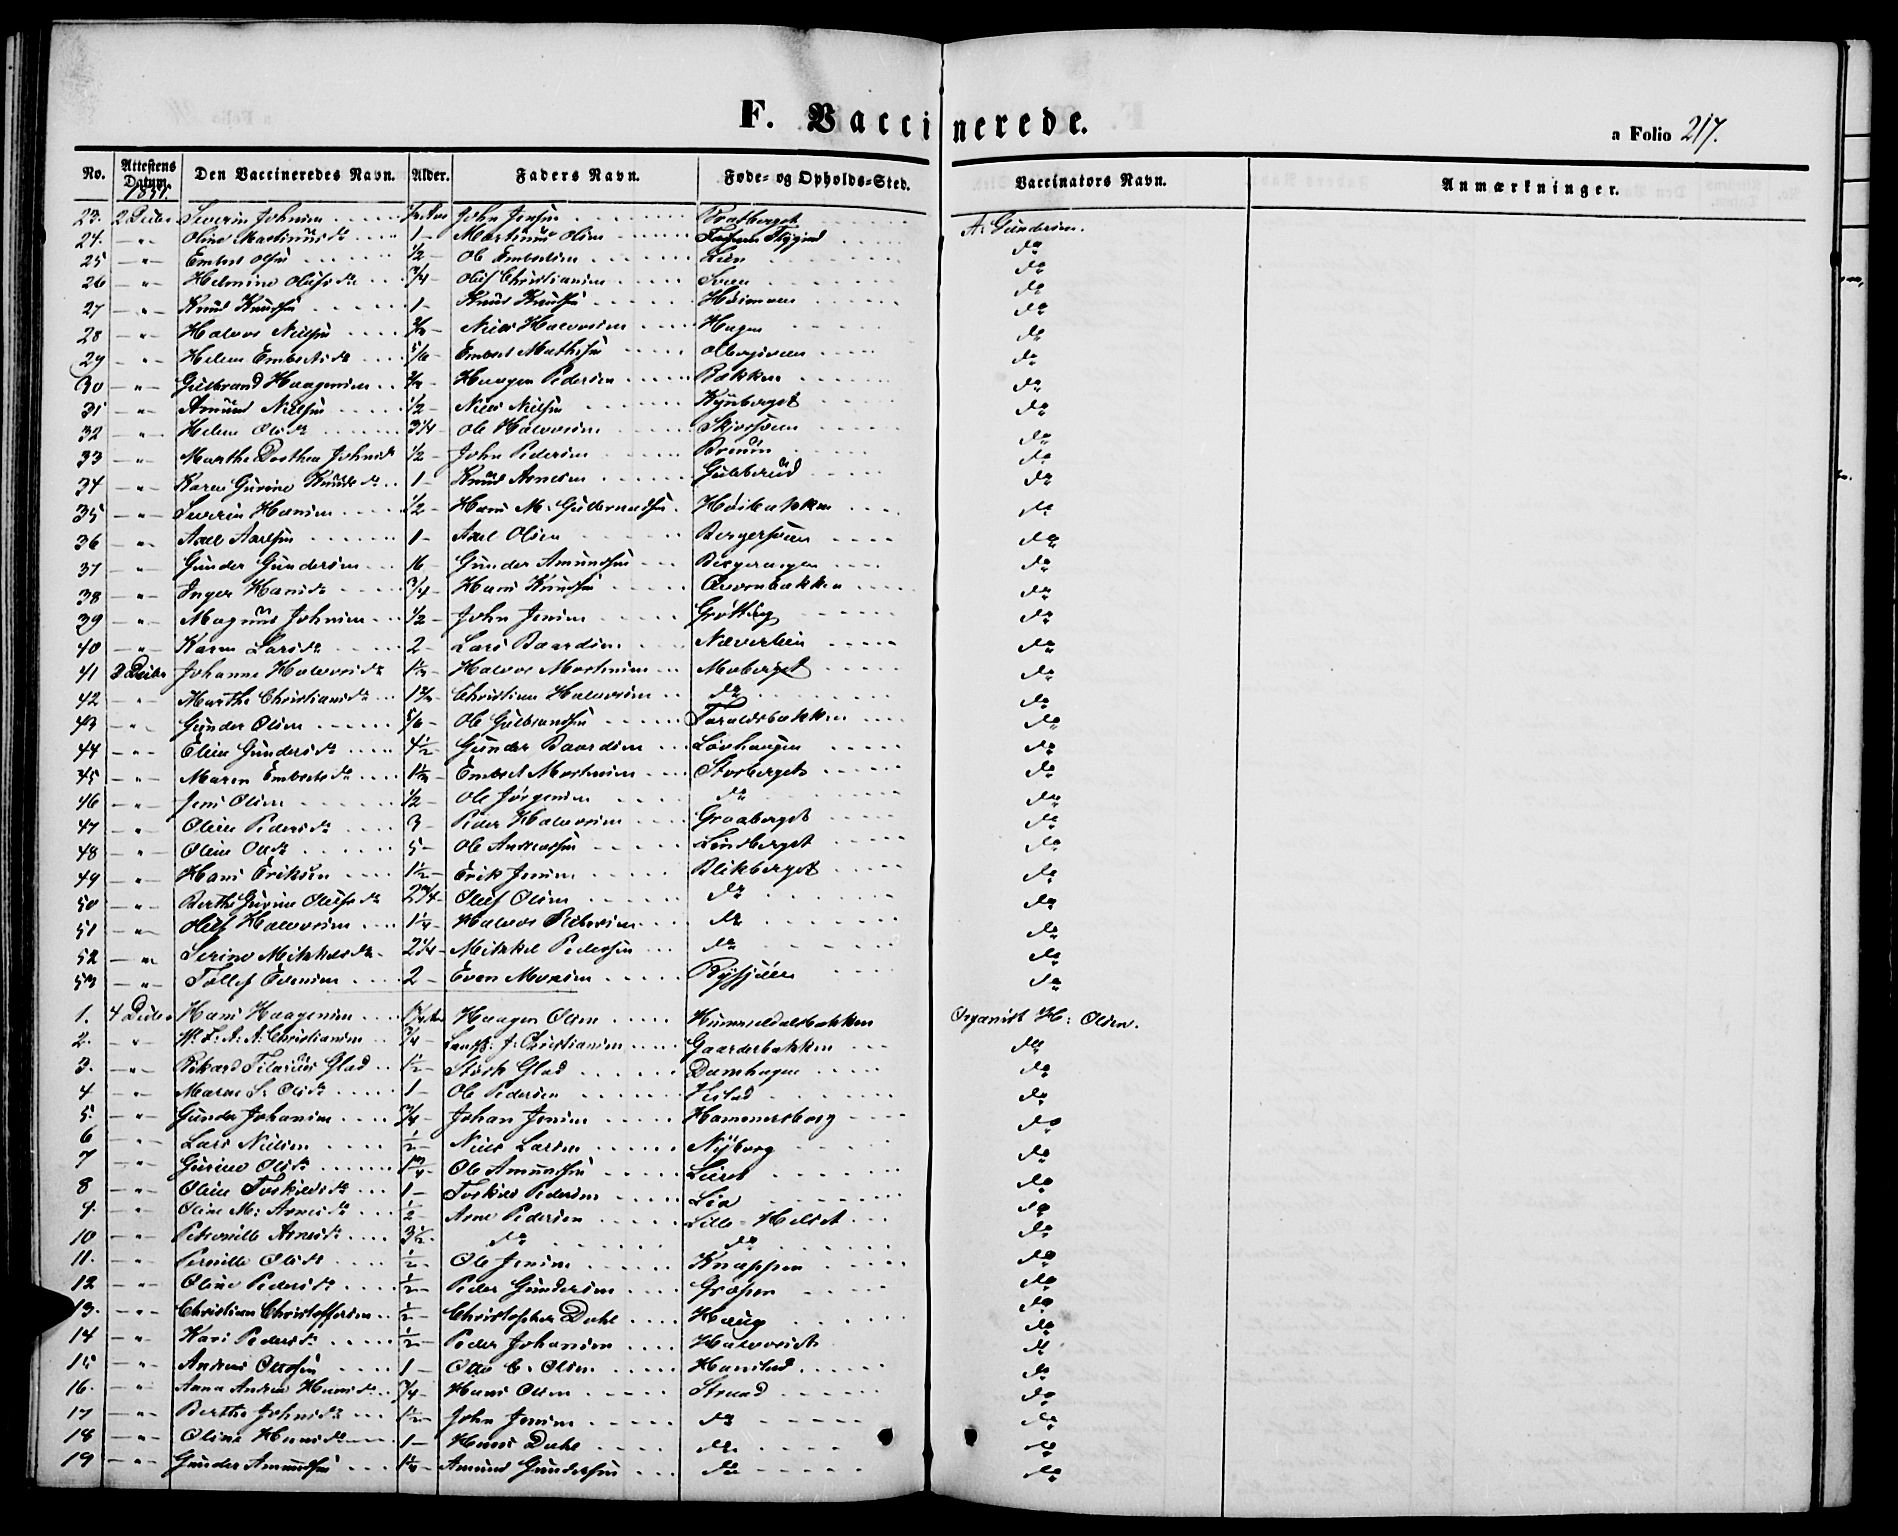 F. Vaccinerede.
a Folio 217.
No. Attestens Datum. Den Vaccineredes Navn. Alder. Faders Navn. Føde- og Opholds-Sted. Vaccinators Navn. Anmærkninger.
1851.
23. 2 Severin Johnsen John Jensen A. Gundersen.
24. — " — Oline Martinusd. 1 — Martinus Olsen do
25 — " — Embret Olsen 1/2 — Ole Embretsen Lien do
26 — " — Helmine Olufsdr 3/4 — Oluf Christiansen do
27 — " — Knud Knudsen 1 — Knud Knudsen do
28 — " — Halvor Nielsen Niels Halvorsen Hagen do
29 — " — Helene Embretsdr 5/6 — Embret Mathisen do
30 — " — Gulbrand Haagensen Haagen Pedersen Bakken do
31 — " — Amund Nielsen 1/2 — Niels Nielsen Kynberget do
32 — " — Helene Olsdr 3 1/4 — Ole Halvorsen do
33 — " — Marthe Dorthea Johnsd 1/2 — John Pedersen do
34 — " — Karen Gurine Knudsdr 1 — Knud Arnesen Gulbberud do
35 — " — Severin Hansen 1/2 — Hans M. Gulbrandsen Høibakken do
36 — " — Axel Axelsen 1 — Axel Olsen do
37 — " — Gunder Gundersen 16 Gunder Amundsen do
38 — " — Inger Hansdr 3/4 — Hans Knudsen do
39 — " — Magnus Johnsen 1/2 — John Jensen Grøtting do
40 — " — Karen Larsdr 2 — Lars Baardsen Næverlien do
41 3 Johanne Halvorsdr Halvor Mortensen Moberget do
42 — " — Marthe Christiansdr Christian Halvorsen do do
43 — " — Gunder Olsen 5/6 — Ole Gulbrandsen Taraldsbakken do
44 — " — Eline Gundersdr 4 1/2 — Gunder Baardsen Løvhaugen do
45 — " — Maren Embretsdr Embret Mortensen Storberget do
46 — " — Jens Olsen 1/2 — Ole Jørgensen do do
47 — " — Oline Pedersdr 3 — Peder Halvorsen Graaberget do
48 — " — Oline Olsdr 5 — Ole Andersen Lindberget do
49 — " — Hans Eriksen 1 1/2 — Erik Jensen Blikberget do
50 — " — Berthe Gurine Olufsdr 2 3/4 — Oluf Olsen do do
51 — " — Oluf Halvorsen 1 1/4 — Halvor Pedersen do do
52 — " — Serine Mikkelsdr 2 1/4 — Mikkel Pedersen do do
53 — " — Tollef Evensen 2 — Even Monsen do
1. 4 Hans Haagensen Haagen Olsen Hummeldalsbakken Organist H: Olsen.
2. — " — Christiansen 3/4 — Christiansen Gaarderbakken do
3. — " — Rikard Glad 1 1/2 — Størk Glad Damhagen do
4 — " — Maren S. Olsdr 1 — Ole Pedersen do
5. — " — Gunder Johansen 3/4 — Johan Jensen Hammersborg do
6 — " — Lars Nielsen 1/2 — Niels Larsen Nyborg do
7 — " — Gurine Olsdr 1 3/4 — Ole Amundsen do
8 — " — Oline Torkildsdr 1 — Torkild Pedersen Lia do
9. — " — Oline M: Arnesdr 1/2 — Arne Pedersen Lille-Helset do
10 — " — Petronille Arnesdr 3 1/2 — do do do
11. — " — Pernille Olsdr 1/2 — Ole Jensen Knappen do
12 — " — Oline Pedersdr 1/2 — Peder Gundersen do
13. — " — Christian Christoffersen 1/2 — Christopher Dahl Haug do
14 — " — Kari Pedersdr 1/2 — Peder Johansen do
15 — " — Andreas Ottosen 1 — Otto C. Olsen Hanstad do
16. — " — Anna Andrea Hansdr 3/4 — Hans Olsen Strand do
17 — " — Berthe Johnsdr 1 1/2 — John Jensen do do
18 — " — Oline Hansdr 1 — Hans Dahl do do
19 — " — Gunder Amundsen Amund Gundersen do do